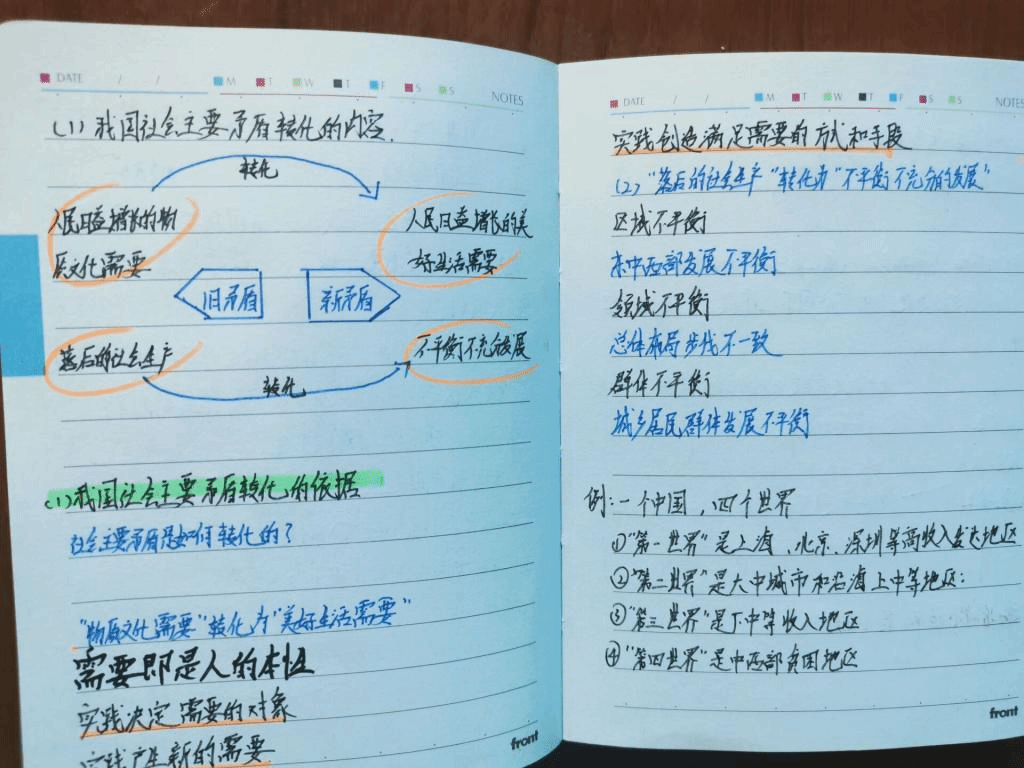 DATE / /
M T W T F S S
NOTES
(1)我国社会主要矛盾转化的内容.
转化
人民日益增长的物
质文化需要
人民日益增长的美
好生活需要
旧矛盾
新矛盾
落后的社会生产
不平衡不充分发展
转化
(1)我国社会主要矛盾转化的依据
社会主要矛盾是如何转化的?
"物质文化需要"转化为"美好生活需要"
需要即是人的本性
实践决定需要的对象
实践产生新的需要
front
DATE / /
M T W T F S S
NOTES
实践创造满足需要的方式和手段
(2)"落后的社会生产"转化为"不平衡不充分的发展"
区域不平衡
东中西部发展不平衡
领域不平衡
总体布局步伐不一致
群体不平衡
城乡居民群体发展不平衡
例:一个中国,四个世界
①"第一世界"是上海、北京、深圳等高收入发达地区
②"第二世界"是大中城市和沿海上中等地区:
③"第三世界"是下中等收入地区
④"第四世界"是中西部贫困地区
front